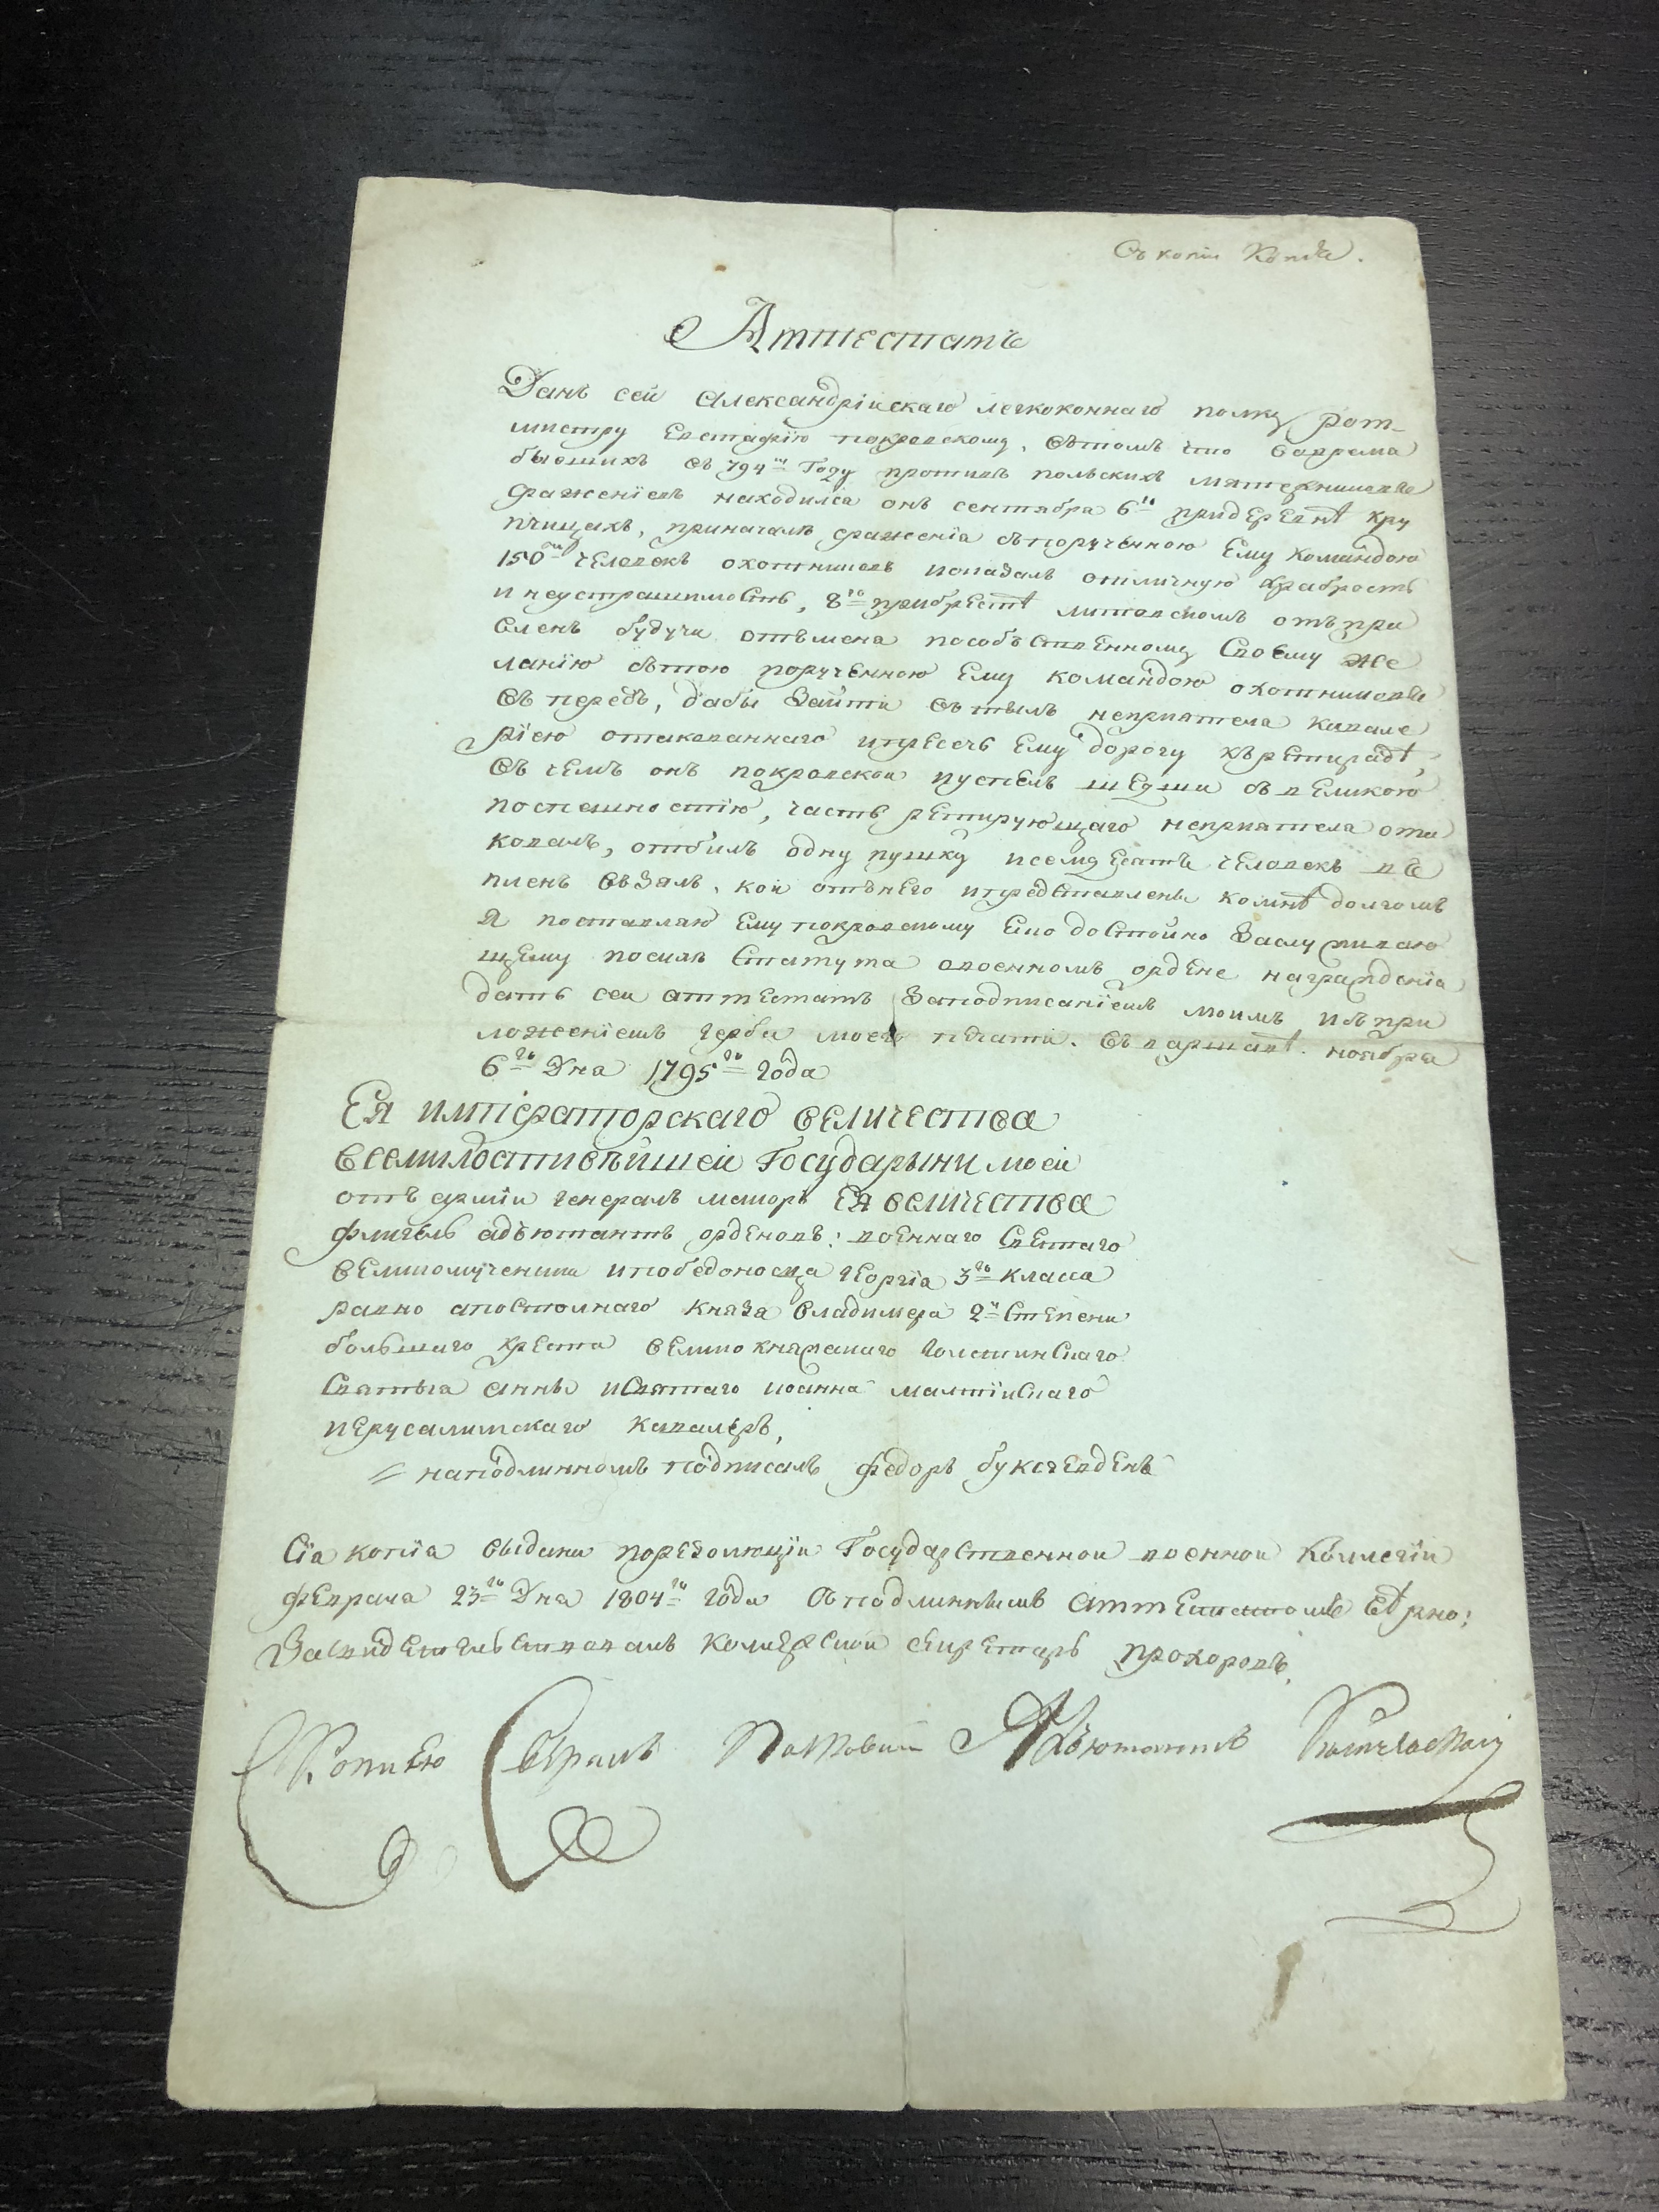 Съ копіи Копія.
Аттестатъ
Данъ сей Александрійскаго легкоконнаго полку Рот-
мистру Евстафію покровскому, вътомъ что вовремя
бывшихъ въ 794-мъ Году противъ польскихъ мятежниковъ
сраженіевъ находился онъ сентября 6-го придеревнѣ кру
пчицахъ, приначалѣ сраженія съпорученною Ему командою
150-ти человекъ охотниковъ показалъ отличную храбрость
и неустрашимость, 8-го прибрестѣ литовскомъ отъпра
вленъ будучи отъменя пособъственному Своему же
ланію сътою порученною Ему командою охотниковъ
въ передъ, дабы Зайти въ тылъ неприятеля кавале
ріею отакованнаго ипресечь Ему дорогу къретирадѣ,
въ чемъ онъ покровской успелъ шедши съ великою
поспешностію, часть ретирующаго неприятеля ота
ковалъ, отбилъ одну пушку иседмдесятъ человекъ въ
пленъ Взялъ, кои отънего ипредставлены комнѣ долгомъ
Я поставляю Ему покровскому яко достойно Заслуживаю
щему посилѣ Статута овоенномъ ордене награжденія
дать сей аттестатъ Заподписаніемъ моимъ исъпри
ложеніемъ герба моего печати. въ варшавѣ. ноября
6-го Дня 1795-го года
Ея императорскаго величества
всемилостивѣйшей Государыни моей
отъ арміи генералъ маиоръ Ея величества
флигель адъютантъ орденовъ: военнаго Светаго
великомученика ипобедоносца георгія 3-го класса
равно апостолнаго князя владимера 2-й Степени
большаго креста великокняжескаго голстинскаго
Святыя анны иСвятаго иоанна малтійскаго
иерусалимскаго кавалеръ,
наподлинномъ подписалъ федоръ буксгевденъ
Сія копія выдана порезолюціи Государственной военной Коллегіи
февраля 23-го Дня 1804-го года Съподлиннымъ аттестатомъ вѣрно:
Засвидетельствовалъ колежской секретарь прохоровъ.
Копиею Верилъ Полковой Адъютантъ